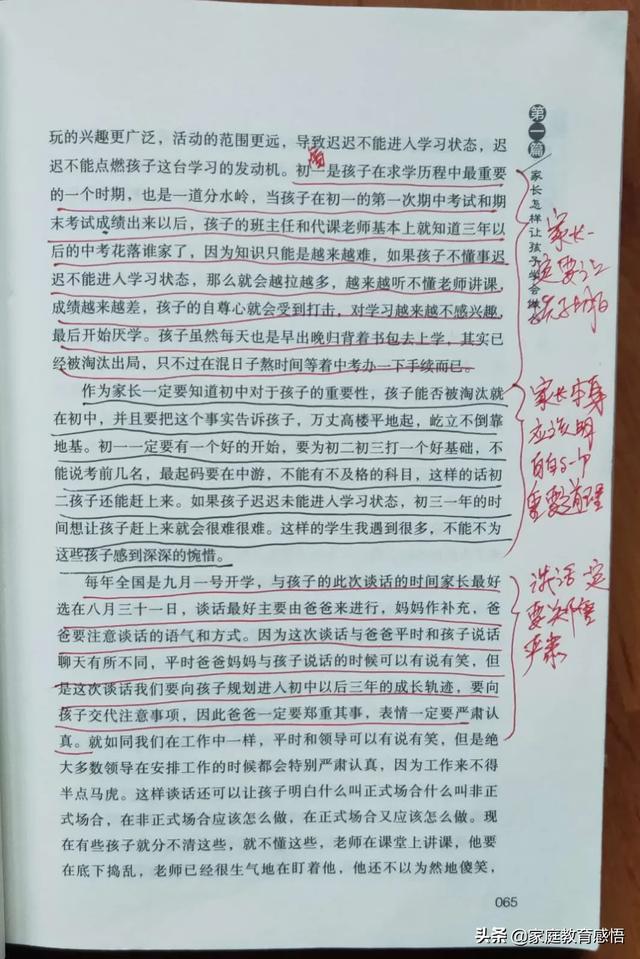 玩的兴趣更广泛，活动的范围更远，导致迟迟不能进入学习状态，迟
迟不能点燃孩子这台学习的发动机。初一是孩子在求学历程中最重要
的一个时期，也是一道分水岭，当孩子在初一的第一次期中考试和期
末考试成绩出来以后，孩子的班主任和代课老师基本上就知道三年以
后的中考花落谁家了，因为知识只能是越来越难，如果孩子不懂事迟
迟不能进入学习状态，那么就会越拉越多，越来越听不懂老师讲课，
成绩越来越差，孩子的自尊心就会受到打击，对学习越来越不感兴趣，
最后开始厌学。孩子虽然每天也是早出晚归背着书包去上学，其实已
经被淘汰出局，只不过在混日子熬时间等着中考办一下手续而已。
作为家长一定要知道初中对于孩子的重要性，孩子能否被淘汰就
在初中，并且要把这个事实告诉孩子，万丈高楼平地起，屹立不倒靠
地基。初一一定要有一个好的开始，要为初二初三打一个好基础，不
能说考前几名，最起码要在中游，不能有不及格的科目，这样的话初
二孩子还能赶上来。如果孩子迟迟未能进入学习状态，初三一年的时
间想让孩子赶上来就会很难很难。这样的学生我遇到很多，不能不为
这些孩子感到深深的惋惜。
每年全国是九月一号开学，与孩子的此次谈话的时间家长最好
选在八月三十一日，谈话最好主要由爸爸来进行，妈妈作补充，爸
爸要注意谈话的语气和方式。因为这次谈话与爸爸平时和孩子说话
聊天有所不同，平时爸爸妈妈与孩子说话的时候可以有说有笑，但
是这次谈话我们要向孩子规划进入初中以后三年的成长轨迹，要向
孩子交代注意事项，因此爸爸一定要郑重其事，表情一定要严肃认
真。就如同我们在工作中一样，平时和领导可以有说有笑，但是绝
大多数领导在安排工作的时候都会特别严肃认真，因为工作来不得
半点马虎。这样谈话还可以让孩子明白什么叫正式场合什么叫非正
式场合，在非正式场合应该怎么做，在正式场合又应该怎么做。现
在有些孩子就分不清这些，就不懂这些，老师在课堂上讲课，他要
在底下捣乱，老师已经很生气地在盯着他，他还不以为然地傻笑，
第一篇
家长怎样让孩子学会
家长一
定要让
孩子明白
家长本身
应该明
谈话一定
要郑重
严肃
065
头条 @家庭教育感悟